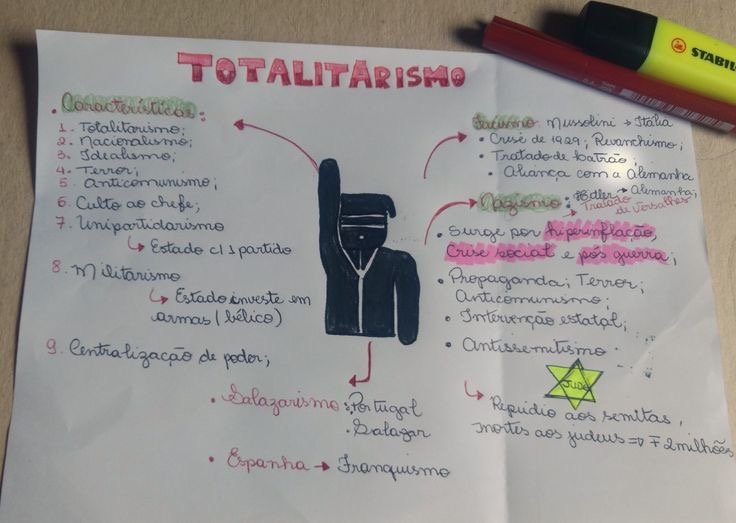 TOTALITARISMO
• Características:
1. Totalitarismo;
2. Nacionalismo;
3. Idealismo;
4. Terror;
5. Anticomunismo;
6. Culto ao chefe;
7. Unipartidarismo
↳ Estado c/ 1 partido
8. Militarismo
↳ Estado investe em
armas (bélico)
9. Centralização de poder;
• Salazarismo: Portugal
• Salazar
• Espanha → Franquismo
Facismo: Mussolini → Itália
• Crise de 1929; Revanchismo;
• Tratado de Latrão;
• Aliança com a Alemanha
Nazismo: Hitler → Alemanha;
↳ Tratado
de Versalhes
• Surge por hiperinflação,
Crise social e pós guerra;
• Propaganda; Terror;
Anticomunismo;
• Intervenção estatal;
• Antissemitismo
JUDE
↳ Repúdio aos semitas,
mortes aos judeus => 2 milhões
STABIL